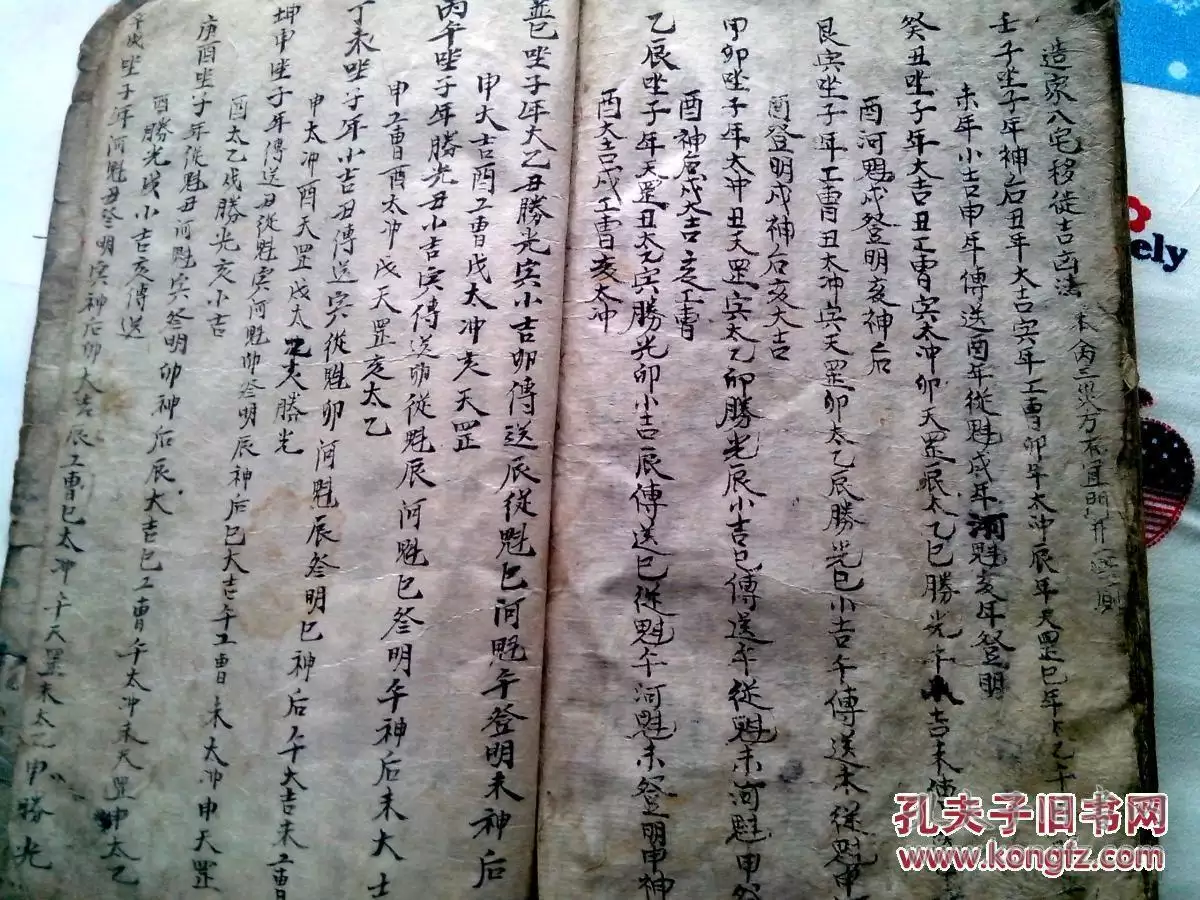 造家八宅移徒吉凶法
壬子坐子年神后丑年大吉寅年工曹卯年太冲辰年天罡巳年太乙午
未年小吉申年傳送酉年從魁戌年河魁亥年登明
癸丑坐子年大吉丑工曹寅太冲卯天罡辰太乙巳勝光午小吉未傳
酉河魁戌登明亥神后
艮寅坐子年工曹丑太冲寅天罡卯太乙辰勝光巳小吉午傳送未從魁申
酉登明戌神后亥大吉
甲卯坐子年太冲丑天罡寅太乙卯勝光辰小吉巳傳送午從魁未河魁申登
酉神后戌大吉亥工曹
乙辰坐子年天罡丑太乙寅勝光卯小吉辰傳送巳從魁午河魁未登明申神
酉大吉戌工曹亥太冲
巽巳坐子年太乙丑勝光寅小吉卯傳送辰從魁巳河魁午登明未神后
申大吉酉工曹戌太冲亥天罡
丙午坐子年勝光丑小吉寅傳送卯從魁辰河魁巳登明午神后未大吉
申工曹酉太冲戌天罡亥太乙
丁未坐子年小吉丑傳送寅從魁卯河魁辰登明巳神后午大吉未工曹
申太冲酉天罡戌太乙亥勝光
坤申坐子年傳送丑從魁寅河魁卯登明辰神后巳大吉午工曹未太冲申天罡
酉太乙戌勝光亥小吉
庚酉坐子年從魁丑河魁寅登明卯神后辰大吉巳工曹午太冲未天罡申太乙
酉勝光戌小吉亥傳送
戌坐子年河魁丑登明寅神后卯大吉辰工曹巳太冲午天罡未太乙申勝光
ely
孔夫子旧书网
www.kongfz.com